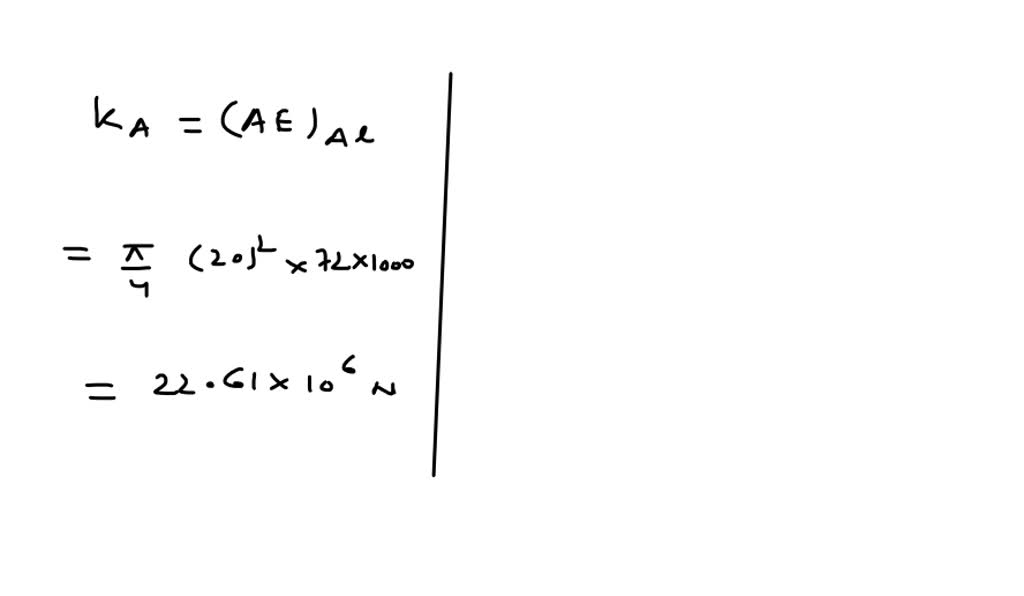 K_A = (AE)_Al
= π/4 (20)² × 72×1000
= 22.61 × 10⁶ N